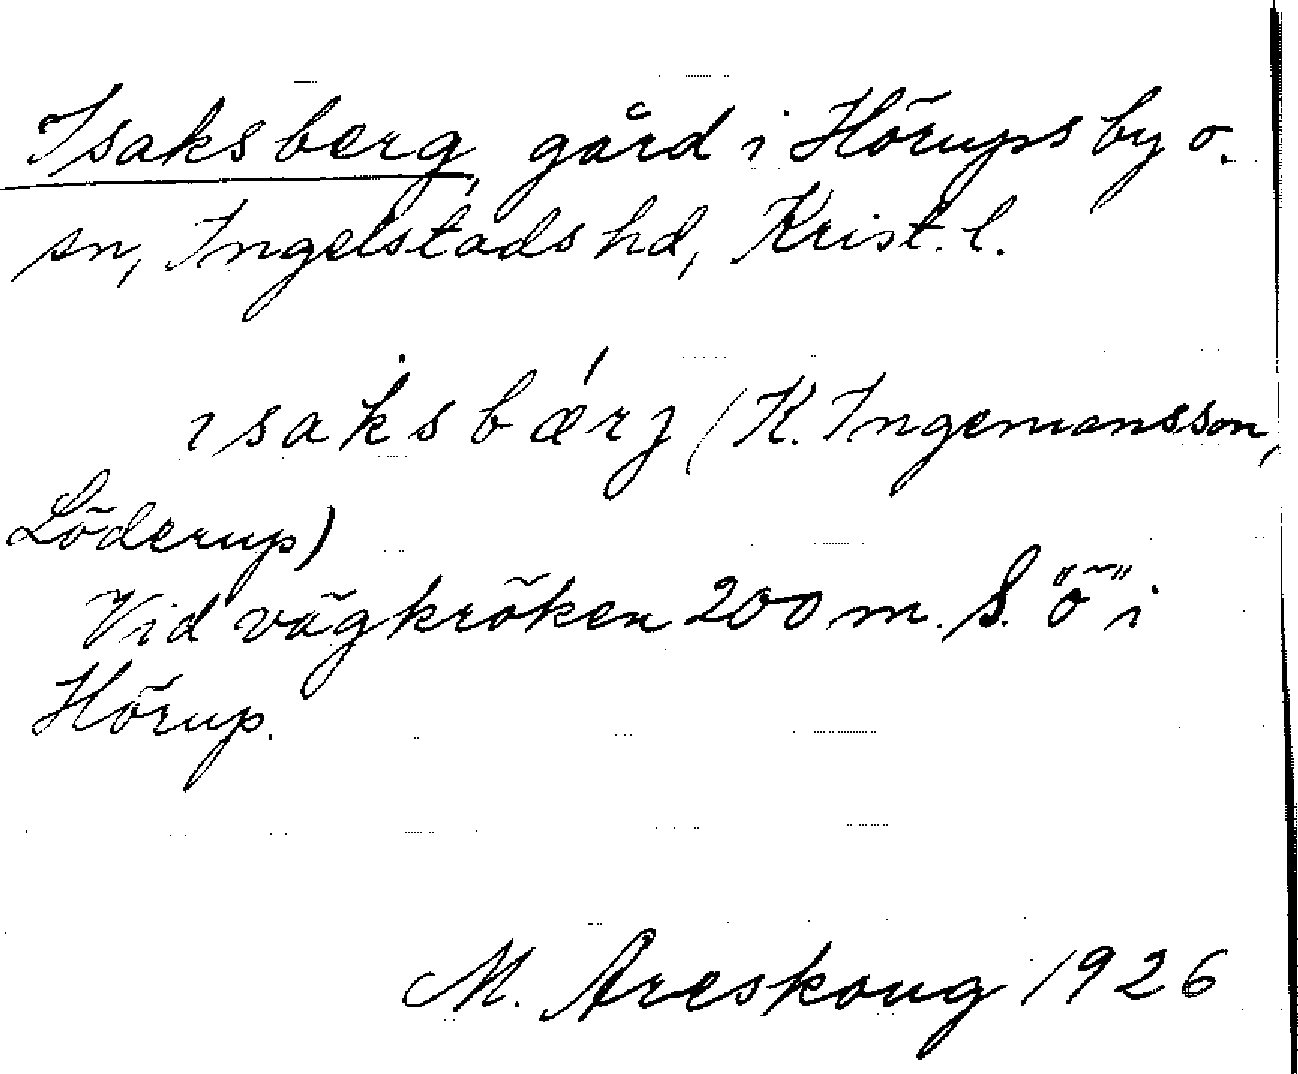 Isaksberg gård i Hörups by o.
sn, Ingelstads hd, Krist. l.
ısaksbærj (K. Ingemansson,
Löderup)
Vid vägkröken 200 m. S. "ö" i
Hörup.
M. Areskoug 1926